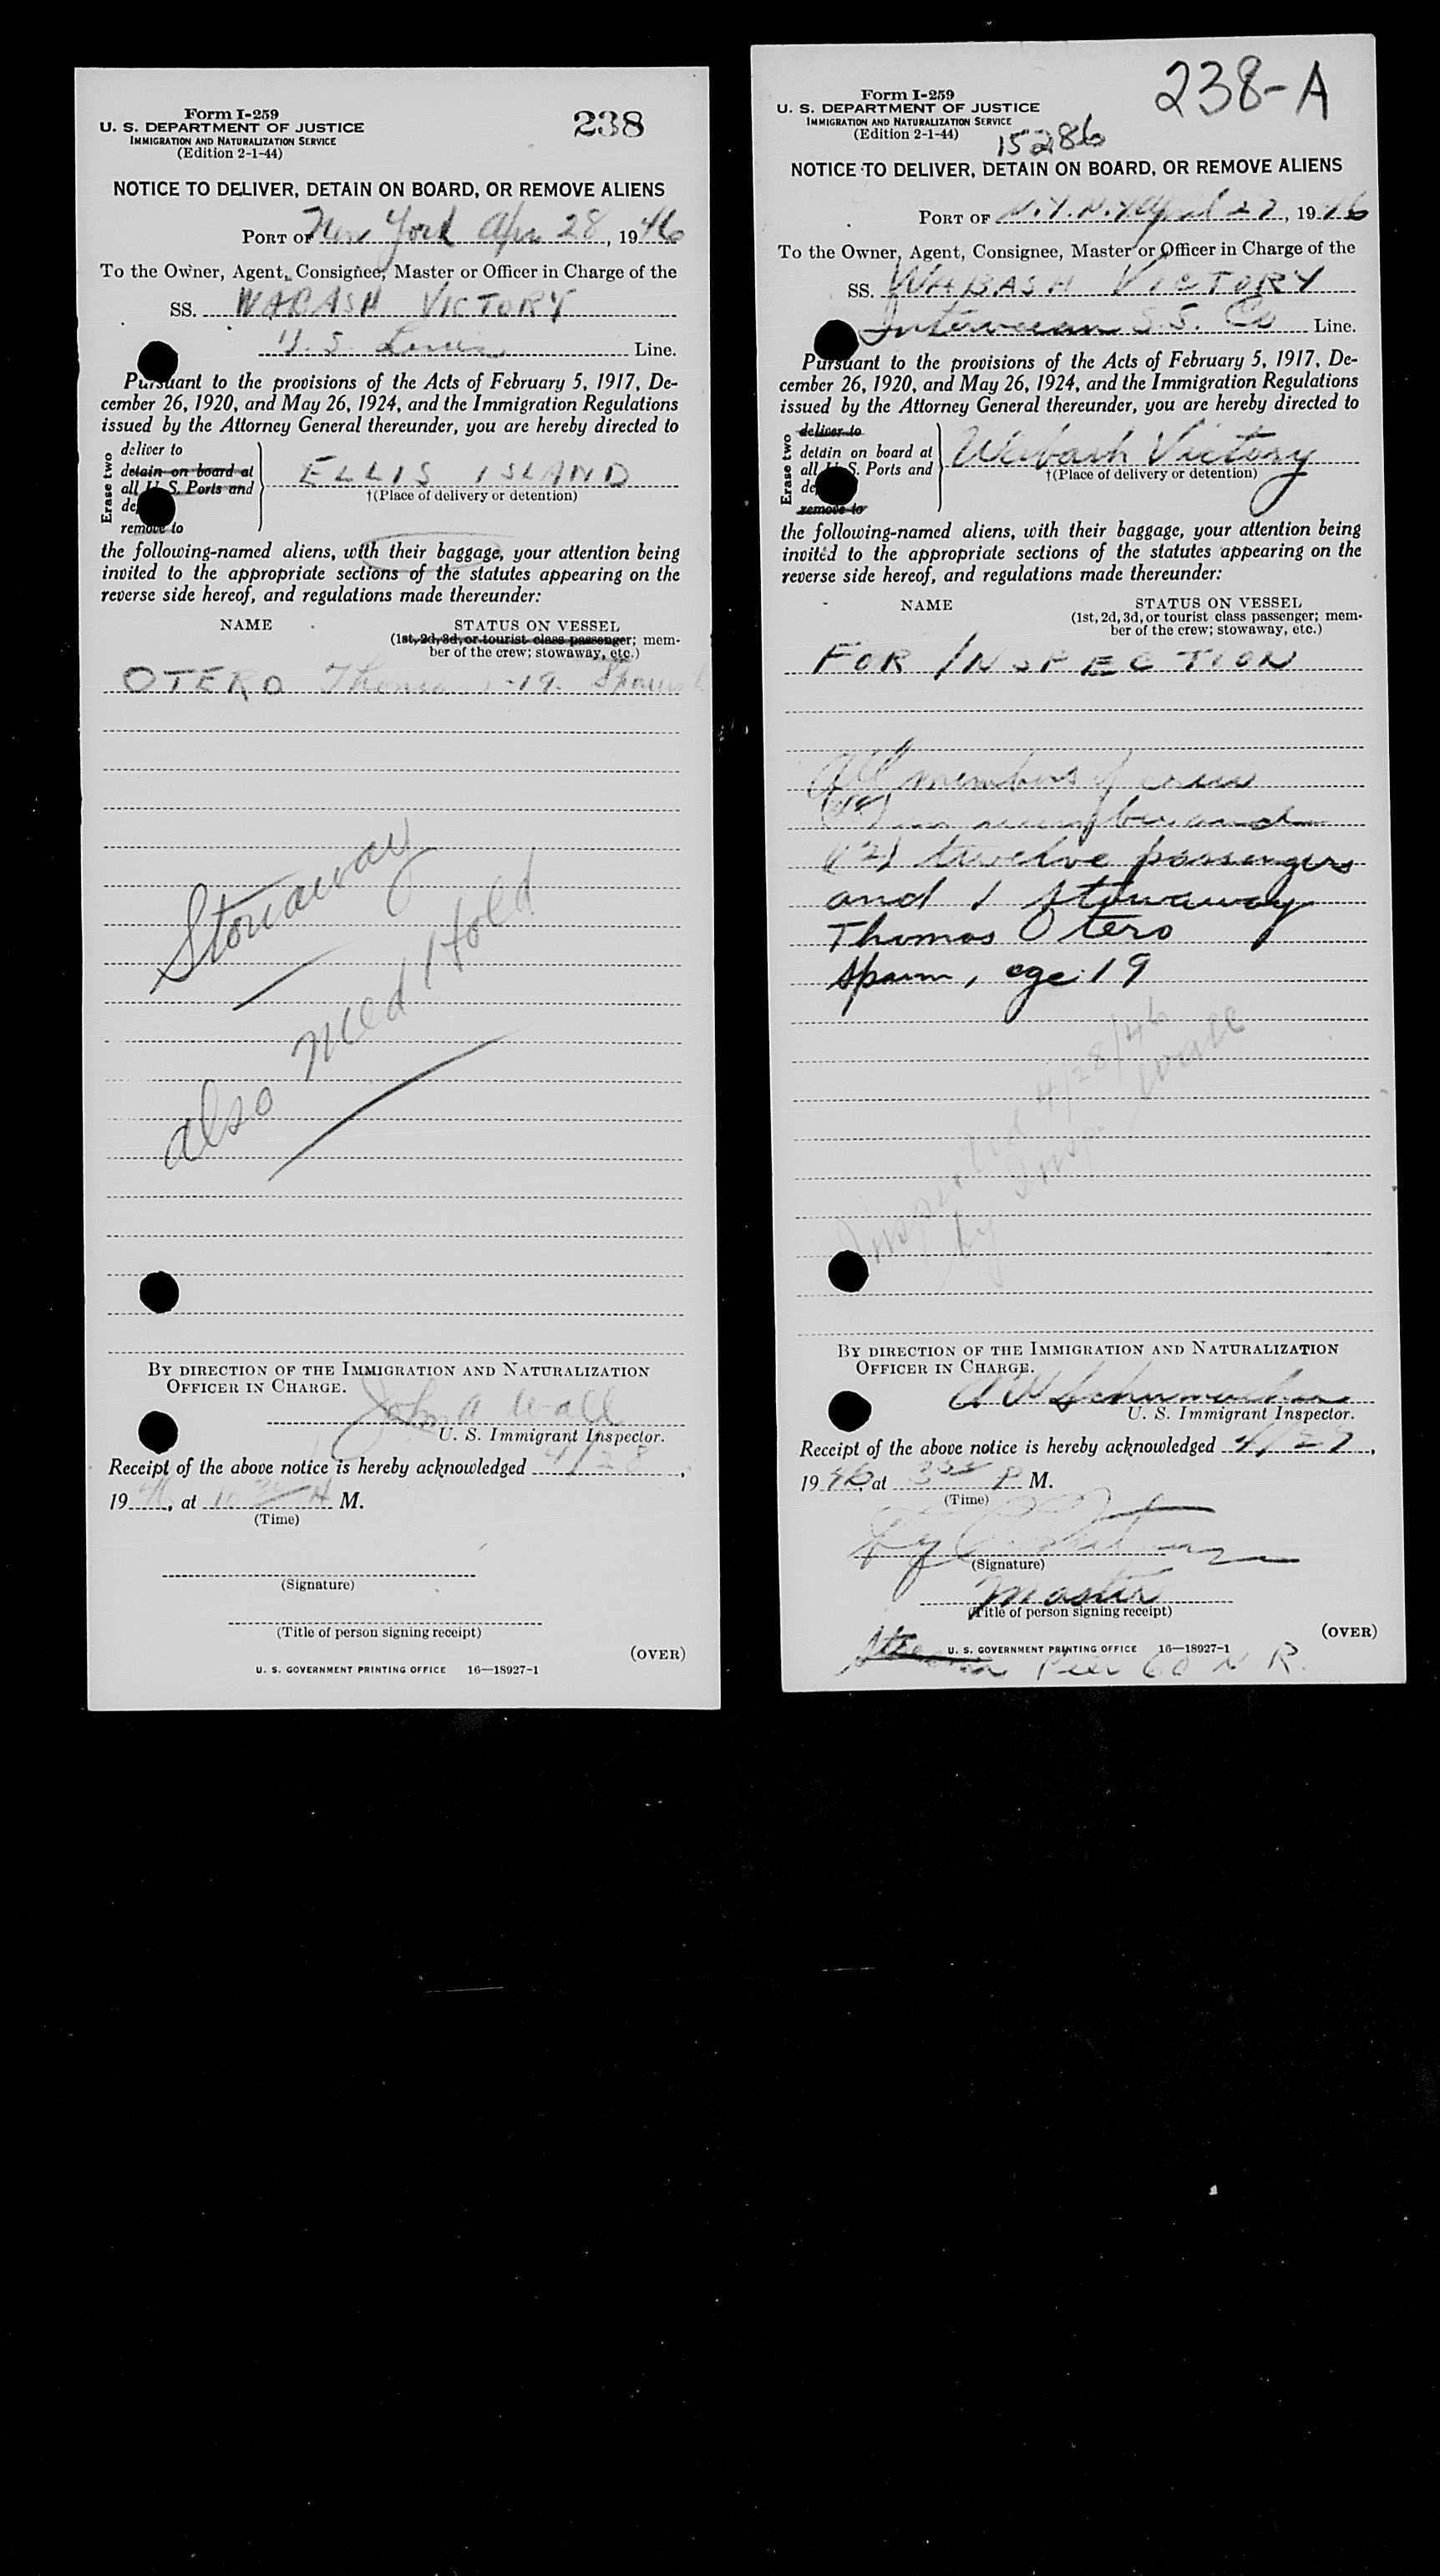 Form I-259
U. S. DEPARTMENT OF JUSTICE
IMMIGRATION AND NATURALIZATION SERVICE
(Edition 2-1-44)
238
NOTICE TO DELIVER, DETAIN ON BOARD, OR REMOVE ALIENS
PORT OF New York Apr 28, 1946
To the Owner, Agent, Consignee, Master or Officer in Charge of the
SS. WABASH VICTORY
U.S. Lines Line.
Pursuant to the provisions of the Acts of February 5, 1917, De-
cember 26, 1920, and May 26, 1924, and the Immigration Regulations
issued by the Attorney General thereunder, you are hereby directed to
Erase two
deliver to
detain on board at
all U. S. Ports and
remove to
ELLIS ISLAND
†(Place of delivery or detention)
the following-named aliens, with their baggage, your attention being
invited to the appropriate sections of the statutes appearing on the
reverse side hereof, and regulations made thereunder:
NAME STATUS ON VESSEL
(1st, 2d, 3d, or tourist class passenger; mem-
ber of the crew; stowaway, etc.)
OTERO Thomas -19- Spanish
Stowaway
also Med Hold
BY DIRECTION OF THE IMMIGRATION AND NATURALIZATION
OFFICER IN CHARGE.
John A Wall
U. S. Immigrant Inspector.
Receipt of the above notice is hereby acknowledged 4/28,
1946, at 10 30 A M.
(Time)
(Signature)
(Title of person signing receipt)
(OVER)
U. S. GOVERNMENT PRINTING OFFICE 16—18927-1
Form I-259
U. S. DEPARTMENT OF JUSTICE
IMMIGRATION AND NATURALIZATION SERVICE
(Edition 2-1-44)
238-A
15286
NOTICE TO DELIVER, DETAIN ON BOARD, OR REMOVE ALIENS
PORT OF N.Y.N.Y April 27, 1946
To the Owner, Agent, Consignee, Master or Officer in Charge of the
SS. WABASH VICTORY
Interocean S.S. Co Line.
Pursuant to the provisions of the Acts of February 5, 1917, De-
cember 26, 1920, and May 26, 1924, and the Immigration Regulations
issued by the Attorney General thereunder, you are hereby directed to
Erase two
deliver to
detain on board at
all U. S. Ports and
remove to
Wabash Victory
†(Place of delivery or detention)
the following-named aliens, with their baggage, your attention being
invited to the appropriate sections of the statutes appearing on the
reverse side hereof, and regulations made thereunder:
NAME STATUS ON VESSEL
(1st, 2d, 3d, or tourist class passenger; mem-
ber of the crew; stowaway, etc.)
FOR INSPECTION
All members of crew
in number and
(12) twelve passengers
and 1 stowaway
Thomas Otero
Spain, age 19
Inspected 4/28/46
by Insp. Wall
BY DIRECTION OF THE IMMIGRATION AND NATURALIZATION
OFFICER IN CHARGE.
U. S. Immigrant Inspector.
Receipt of the above notice is hereby acknowledged 4/27,
1946, at P M.
(Time)
(Signature)
Master
(Title of person signing receipt)
(OVER)
U. S. GOVERNMENT PRINTING OFFICE 16—18927-1
Pier 60 N R.